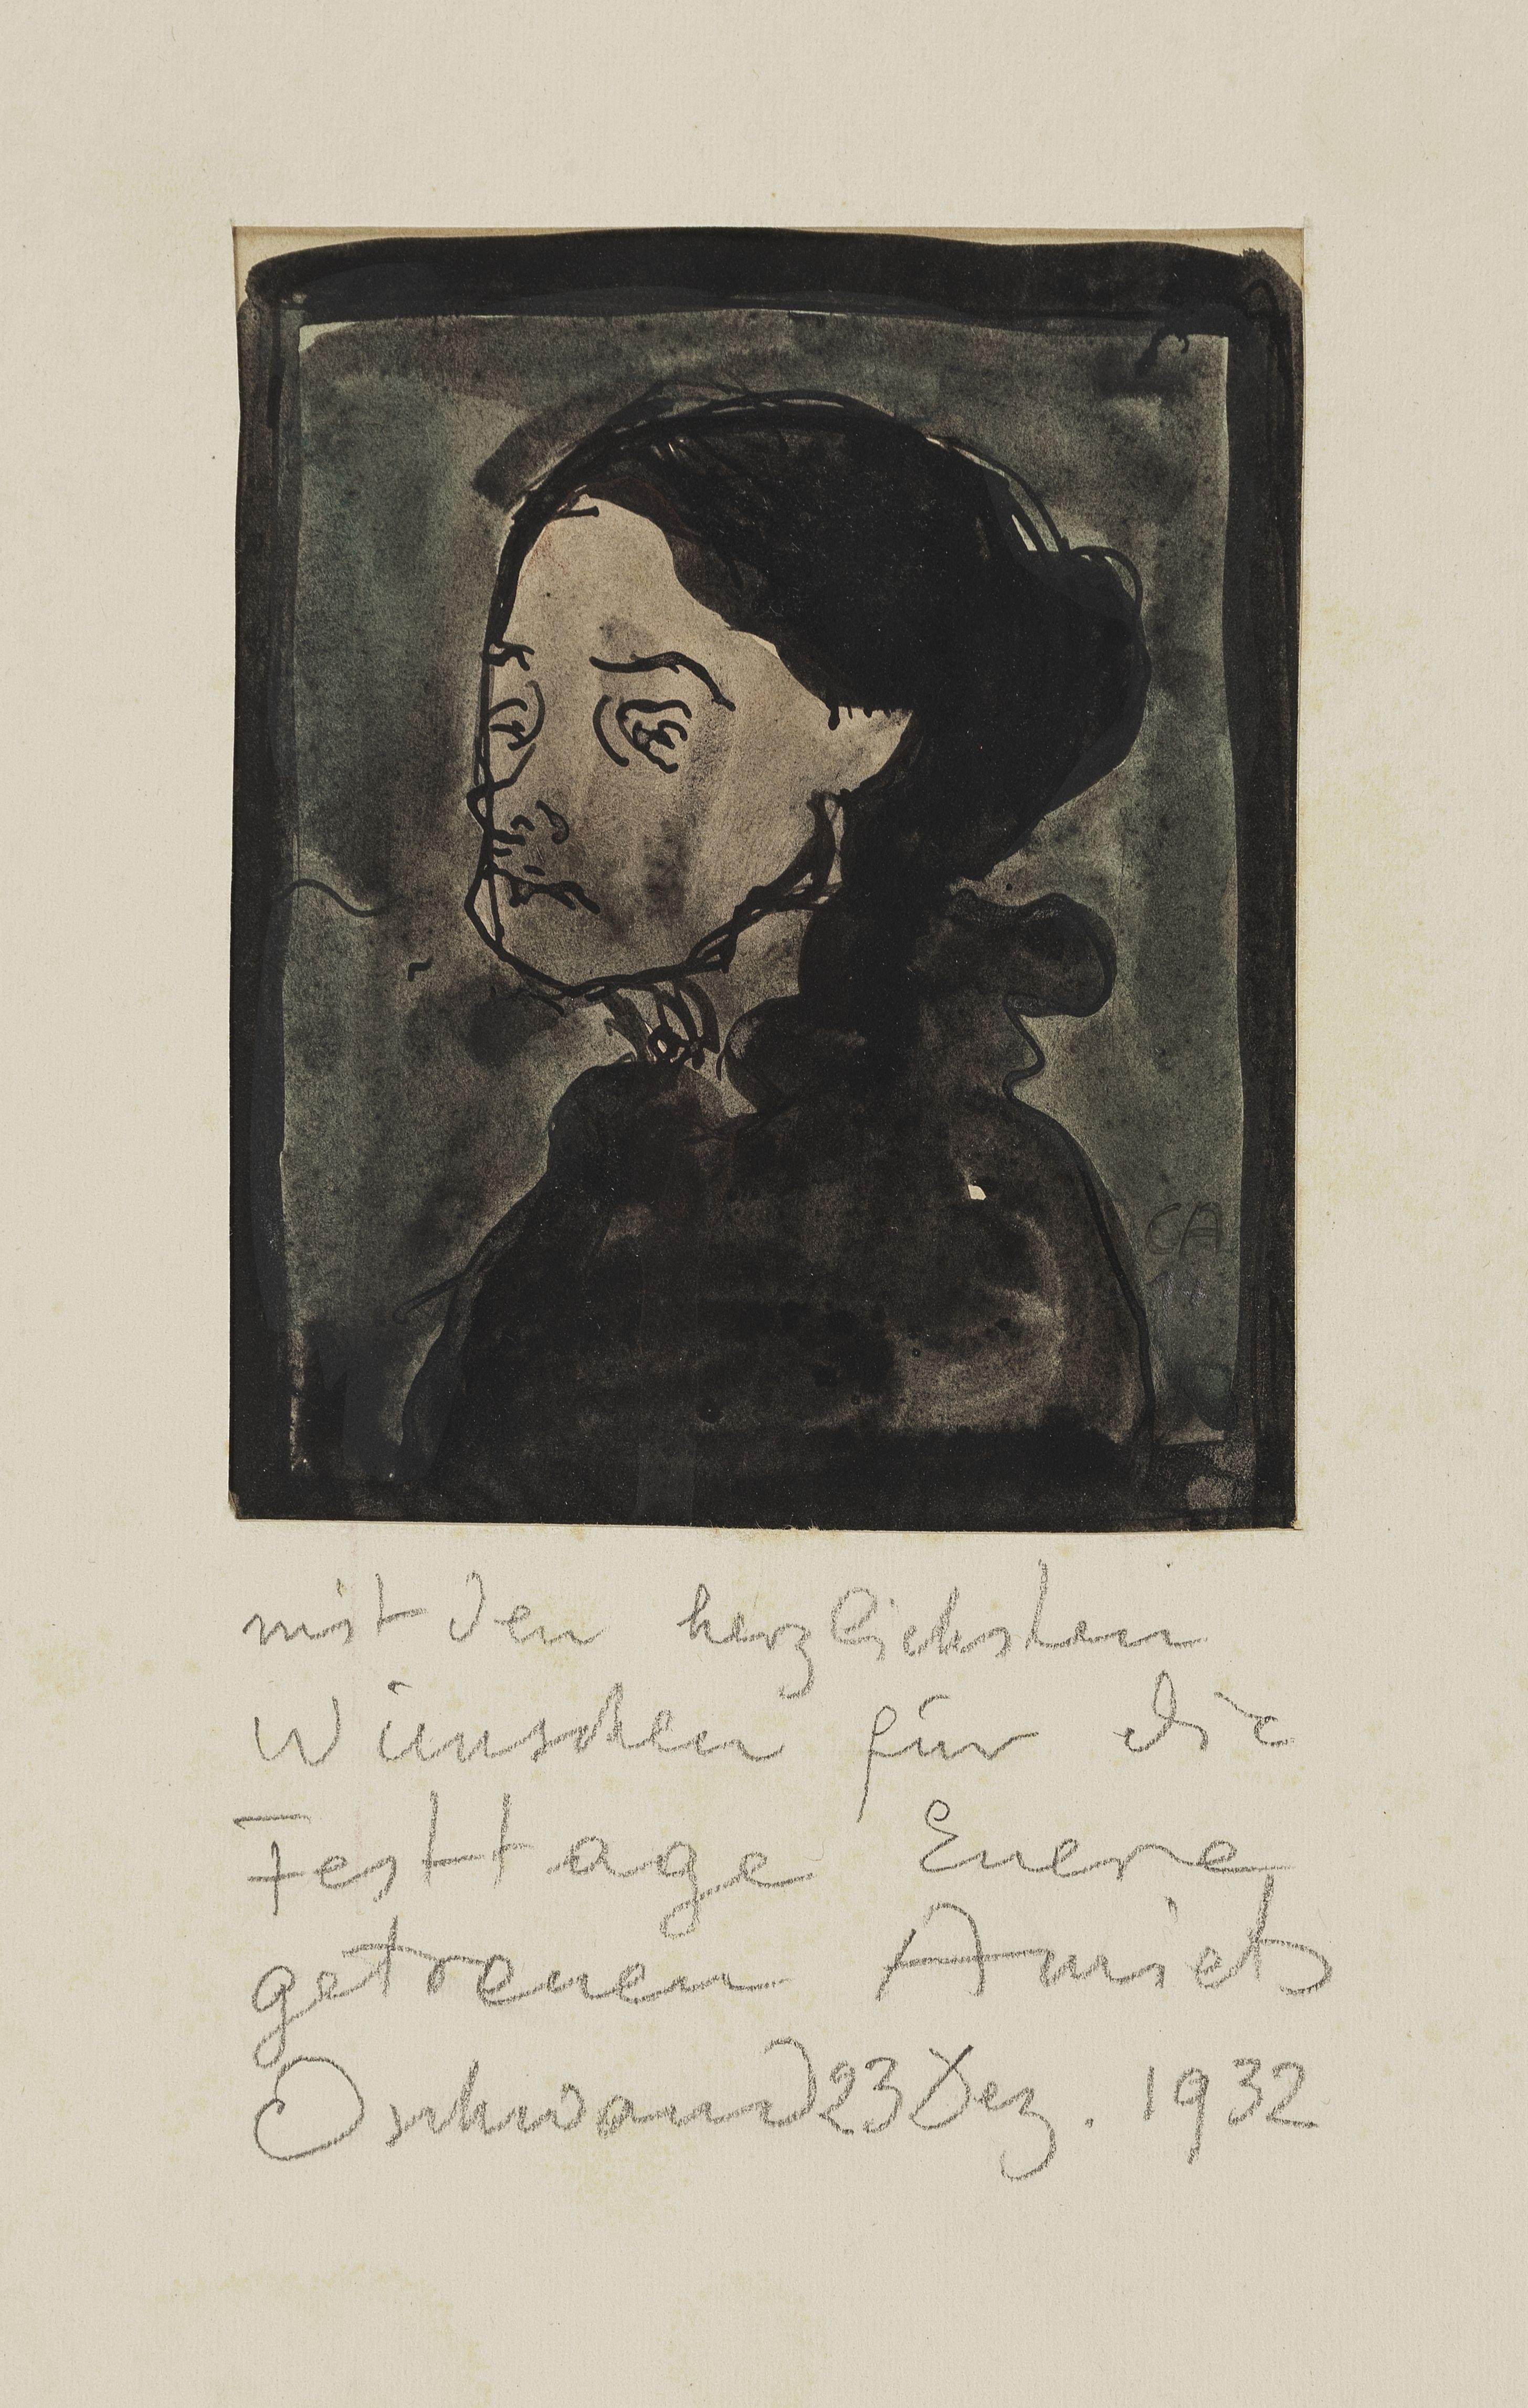 CA
mit den herzlichsten
Wünschen für die
Festtage Euere
getreuen Amiets
Oschwand 23 Dez. 1932